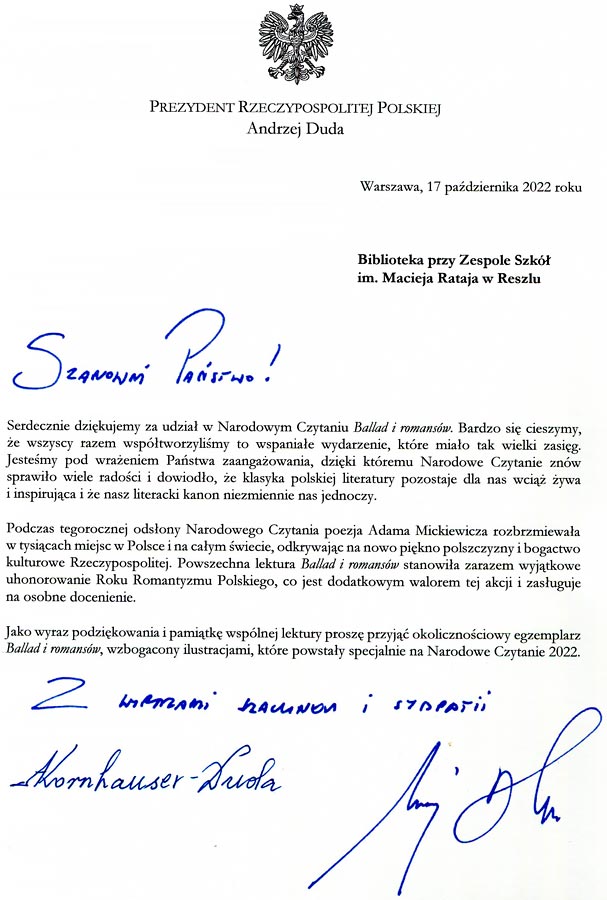 PREZYDENT RZECZYPOSPOLITEJ POLSKIEJ
Andrzej Duda
Warszawa, 17 października 2022 roku
Biblioteka przy Zespole Szkół
im. Macieja Rataja w Reszlu
Szanowni Państwo!
Serdecznie dziękujemy za udział w Narodowym Czytaniu Ballad i romansów. Bardzo się cieszymy,
że wszyscy razem współtworzyliśmy to wspaniałe wydarzenie, które miało tak wielki zasięg.
Jesteśmy pod wrażeniem Państwa zaangażowania, dzięki któremu Narodowe Czytanie znów
sprawiło wiele radości i dowiodło, że klasyka polskiej literatury pozostaje dla nas wciąż żywa
i inspirująca i że nasz literacki kanon niezmiennie nas jednoczy.
Podczas tegorocznej odsłony Narodowego Czytania poezja Adama Mickiewicza rozbrzmiewała
w tysiącach miejsc w Polsce i na całym świecie, odkrywając na nowo piękno polszczyzny i bogactwo
kulturowe Rzeczypospolitej. Powszechna lektura Ballad i romansów stanowiła zarazem wyjątkowe
uhonorowanie Roku Romantyzmu Polskiego, co jest dodatkowym walorem tej akcji i zasługuje
na osobne docenienie.
Jako wyraz podziękowania i pamiątkę wspólnej lektury proszę przyjąć okolicznościowy egzemplarz
Ballad i romansów, wzbogacony ilustracjami, które powstały specjalnie na Narodowe Czytanie 2022.
Z wyrazami szacunku i sympatii
AKornhauser-Duda